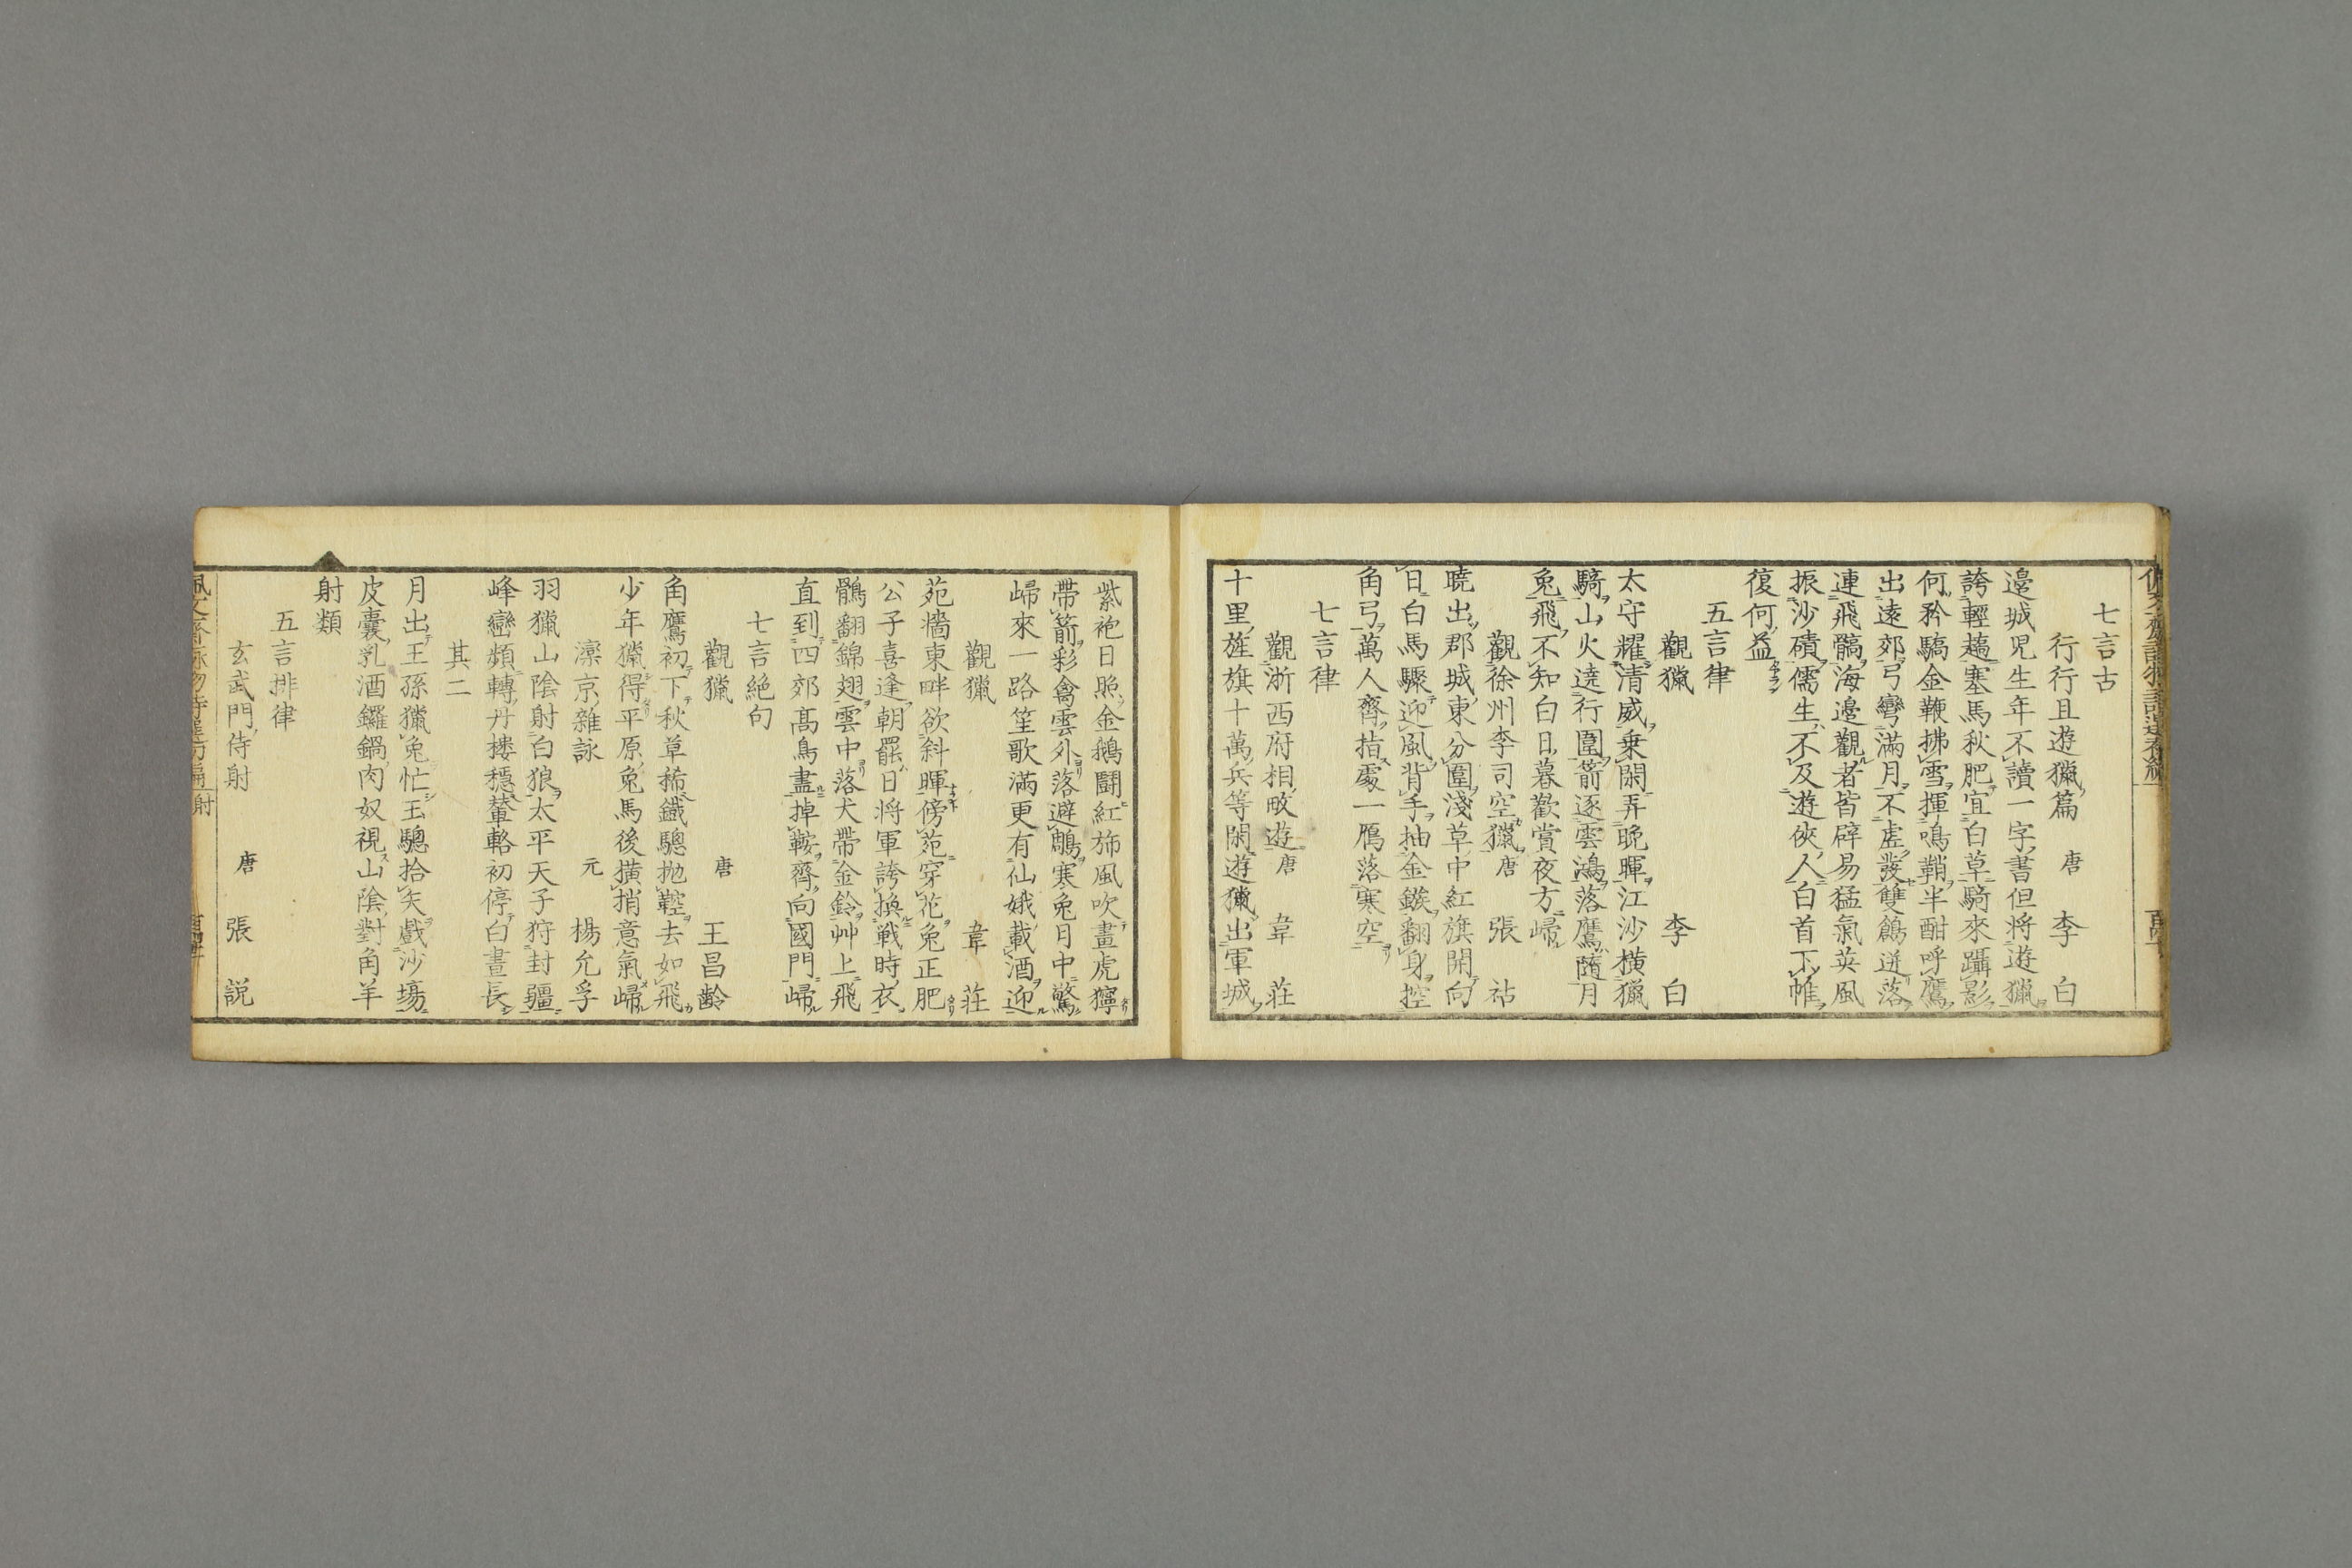 七言古
行行且遊獵篇 唐 李白
邉城児生年不讀一字書但将遊獵
誇輕趫塞馬秋肥宜白草騎來躡影
何矜驕金鞭拂雪揮鳴鞘半酣呼鷹
出遠郊弓彎滿月不虚發雙鶬迸落
連飛髇海邉觀者皆辟易猛氣英風
振沙磧儒生不及遊俠人白首下帷
復何益
五言律
觀獵 李白
太守耀清威乗閑弄晩暉江沙横獵
騎山火遶行圍箭逐雲鴻落鷹随月
兔飛不知白日暮歡賞夜方歸
觀徐州李司空獵 唐 張祜
曉出郡城東分圍淺草中紅旗開向
日白馬驟迎風背手抽金鏃翻身控
角弓萬人齊指處一鴈落寒空
七言律
觀浙西府相畋遊 唐 韋荘
十里旌旗十萬兵等閑遊獵出軍城
紫袍日照金鵝鬪紅斾風吹畫虎獰
帶箭彩禽雲外落避鵰寒兔月中驚
歸來一路笙歌滿更有仙娥載酒迎
觀獵 韋荘
苑牆東畔欲斜暉傍苑穿花兔正肥
公子喜逢朝罷日将軍誇換戦時衣
鶻翻錦翅雲中落犬帶金鈴艸上飛
直到四郊髙鳥盡掉鞍齊向國門歸
七言絶句
觀獵 唐 王昌齢
角鷹初下秋草稀鐵驄抛鞚去如飛
少年獵得平原兔馬後横捎意氣歸
灤京雜詠 元 楊允孚
羽獵山陰射白狼太平天子狩封疆
峰巒頻轉丹樓穩輦輅初停白晝長
其二
月出王孫獵兔忙玉驄拾矢戲沙場
皮囊乳酒鑼鍋肉奴視山陰對角羊
射類
五言排律
玄武門侍射 唐 張説